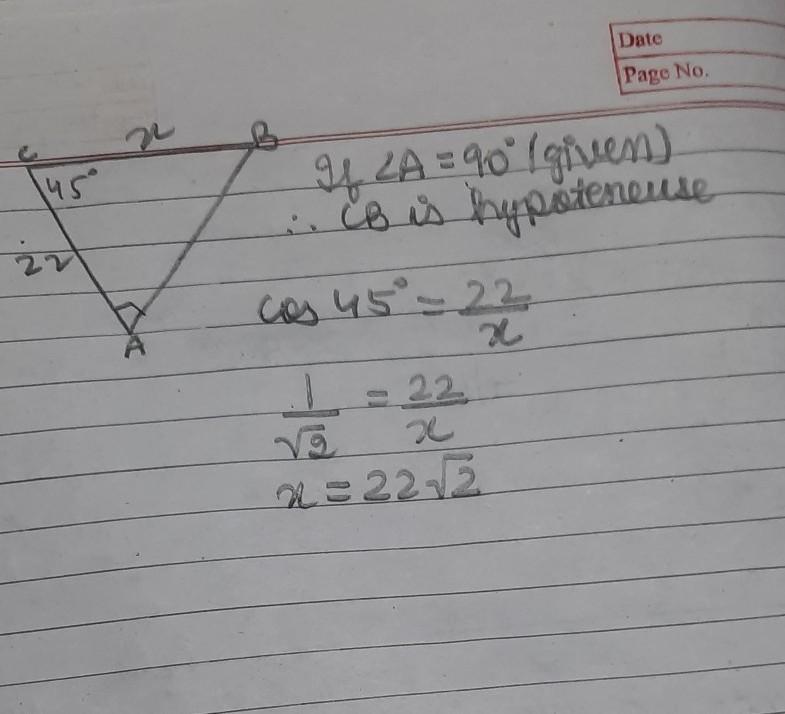 Date
Page No.
x
C
B
45°
22
A
If ∠A = 90° (given)
∴ CB is hypoteneuse
cos 45° = 22/x
1/√2 = 22/x
x = 22√2